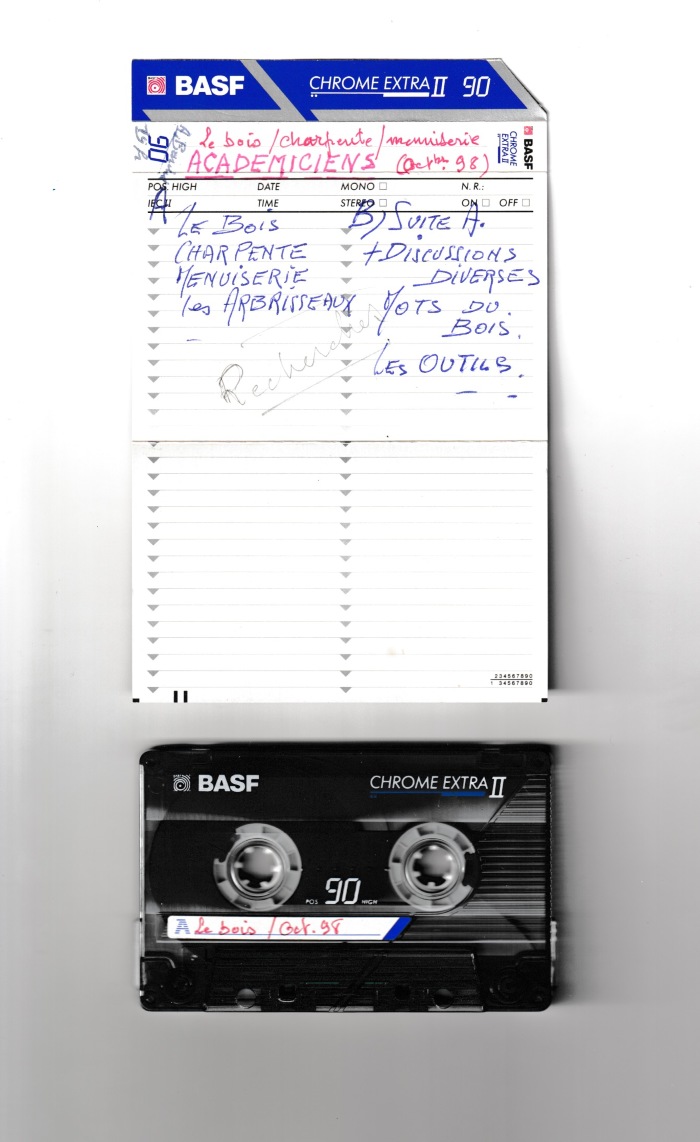 BASF CHROME EXTRA II 90
Le bois / charpente / menuiserie
ACADEMICIENS (Octbre 98)
90
BASF
CHROME
EXTRA II
POS. HIGH DATE MONO N.R.:
IEC II TIME STEREO ON OFF
A
LE BOIS
CHARPENTE
MENUISERIE
les ARBRISSEAUX
B) SUITE A.
+ DISCUSSIONS
DIVERSES
MOTS DU.
BOIS.
LES OUTILS.
Recherches
234567890
1 34567890
BASF CHROME EXTRA II
POS 90 HIGH
A Le bois / Oct. 98